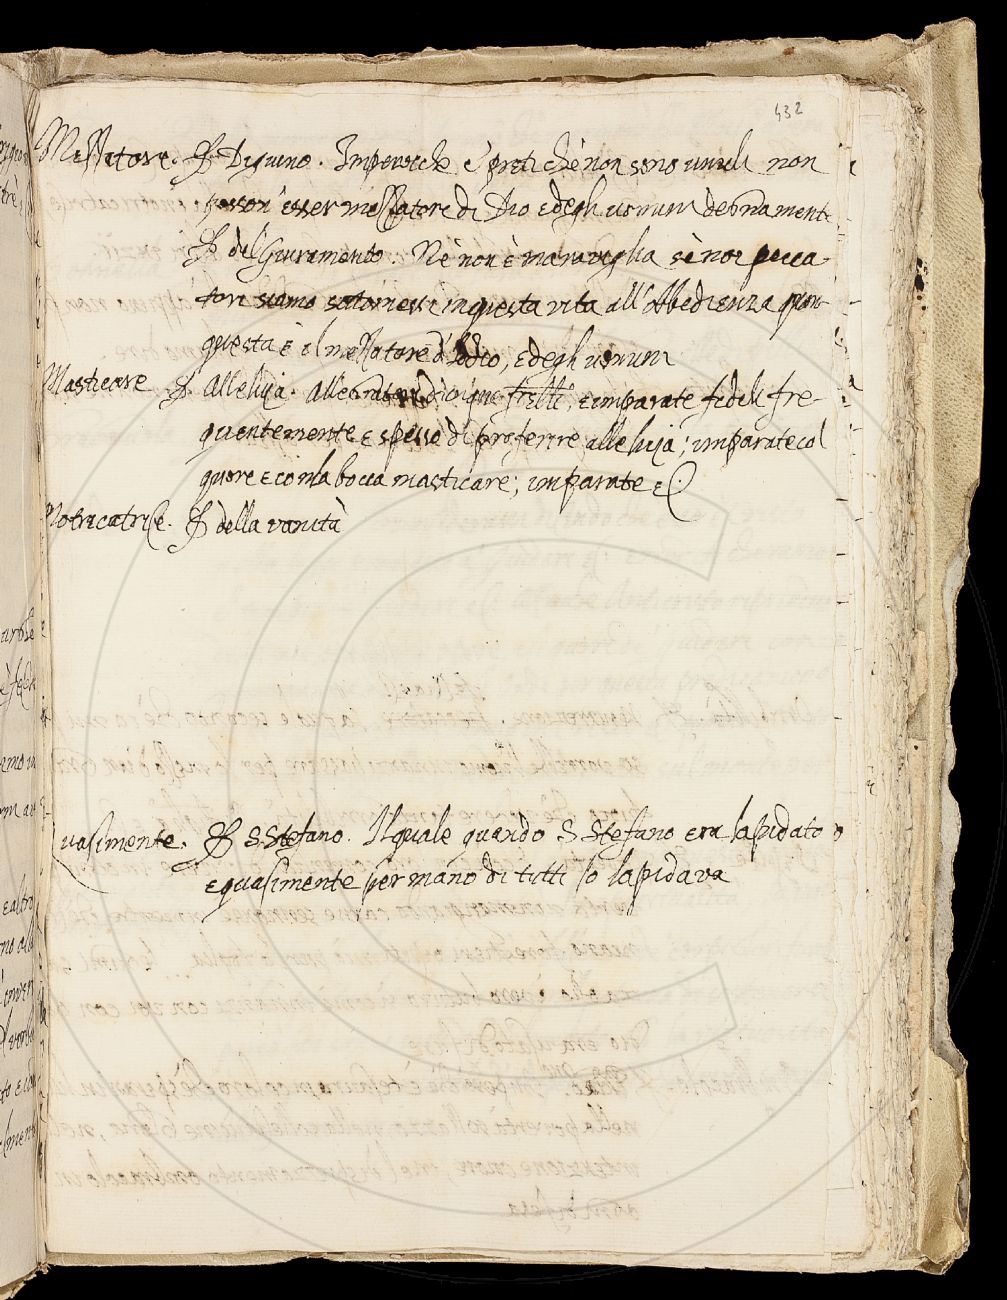 432
Messatore. P. Digiuno. Imperocche è preti chè non sono umili non
posson esser messatore di Dio e degli uomini degnamente
P. del Giuramento. Nè non è maraviglia se noi pecca-
tori siamo sottomessi in questa vita all'Obbedienza
questa è il messatore d'Iddio, e degli uomini
Masticare P. Alleluja. fratelli, e imparate fedeli fre-
quentemente e spesso di proferire alleluja; imparate col
quore e con la bocca masticare; imparate ec.
Notricatrice. P. della vanità
Quasimente. P. S. Stefano. Il quale quando S. Stefano era lapidato
e quasimente per mano di tutti lo lapidava